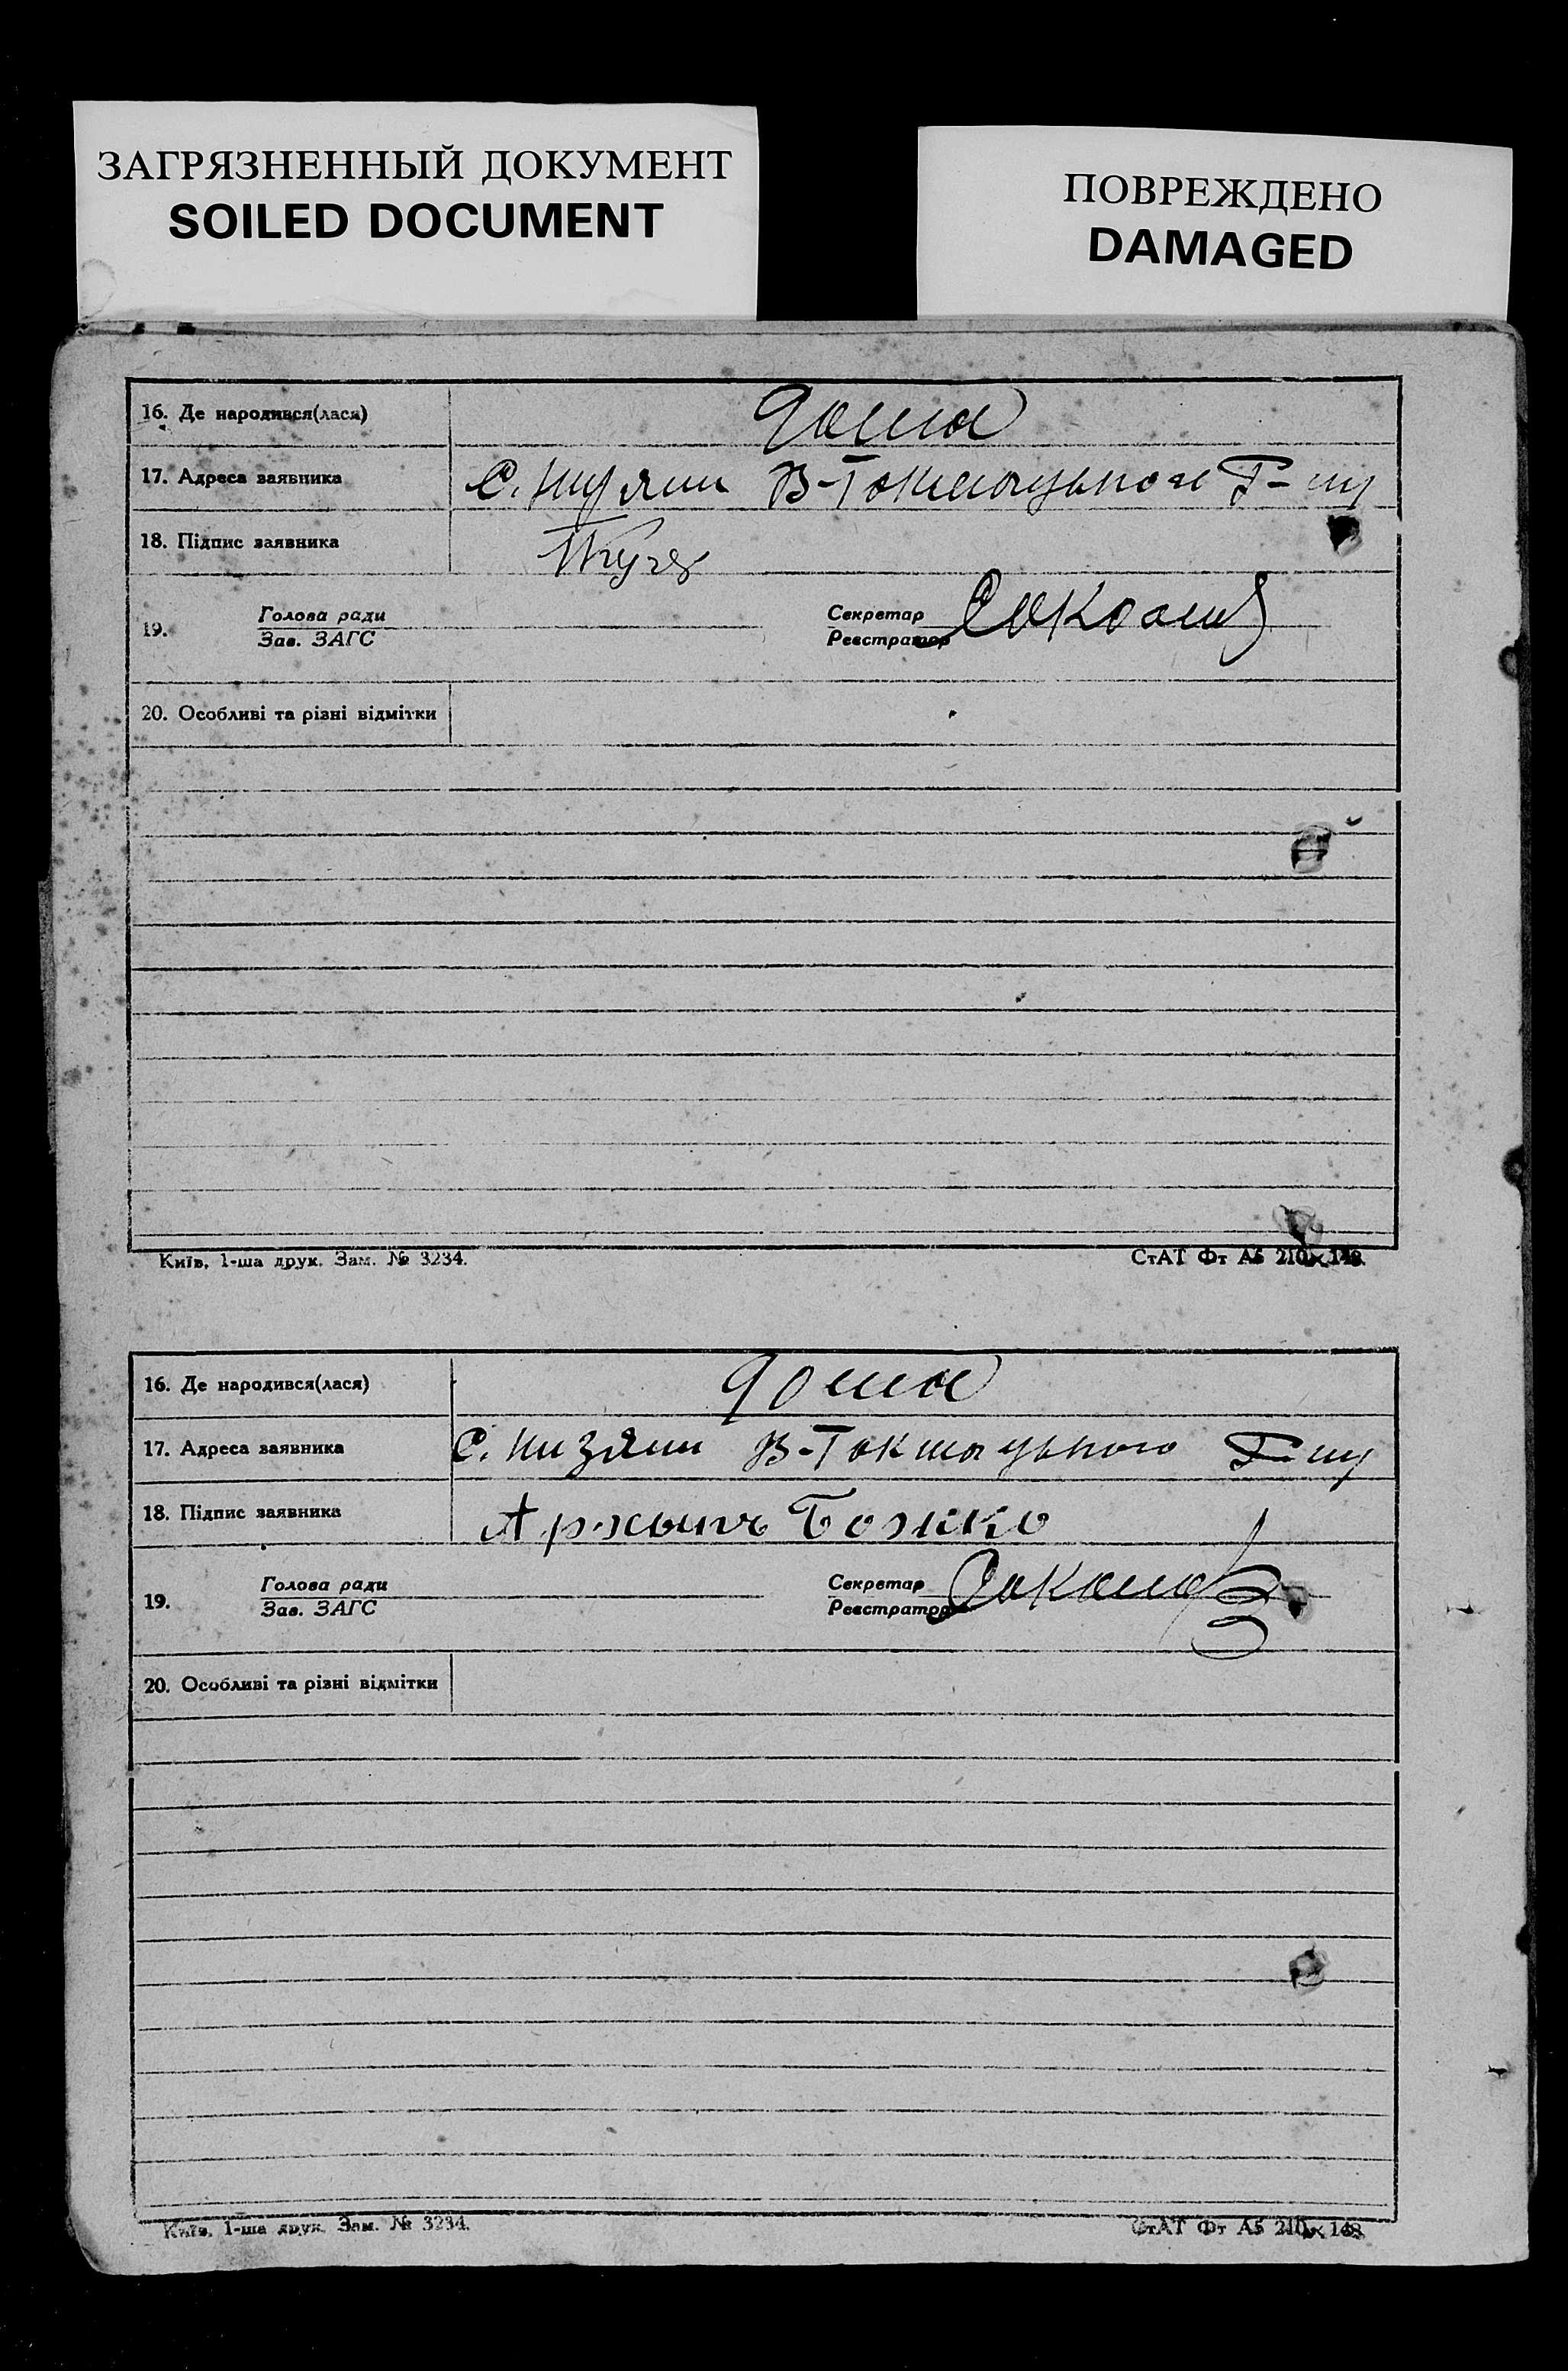 ЗАГРЯЗНЕННЫЙ ДОКУМЕНТ
SOILED DOCUMENT
ПОВРЕЖДЕНО
DAMAGED
16. Де народився(лася) дома
17. Адреса заявника С. Низяни В-Токмацького Р-ну
18. Підпис заявника
19. Голова ради
Зав. ЗАГС
Секретар
Реєстратор
20. Особливі та різні відмітки
Київ, 1-ша друк. Зам. № 3234.
СтАТ Фт А5 210×148.
16. Де народився(лася) дома
17. Адреса заявника С. Низяни В-Токмацького Р-ну
18. Підпис заявника Божко
19. Голова ради
Зав. ЗАГС
Секретар
Реєстратор
20. Особливі та різні відмітки
Київ, 1-ша друк. Зам. № 3234.
СтАТ Фт А5 210×148.